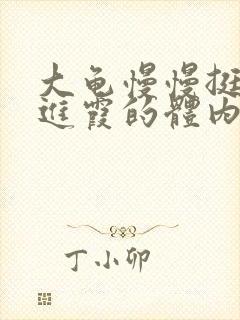 大龟慢慢挺
進霞的體内
丁小卯